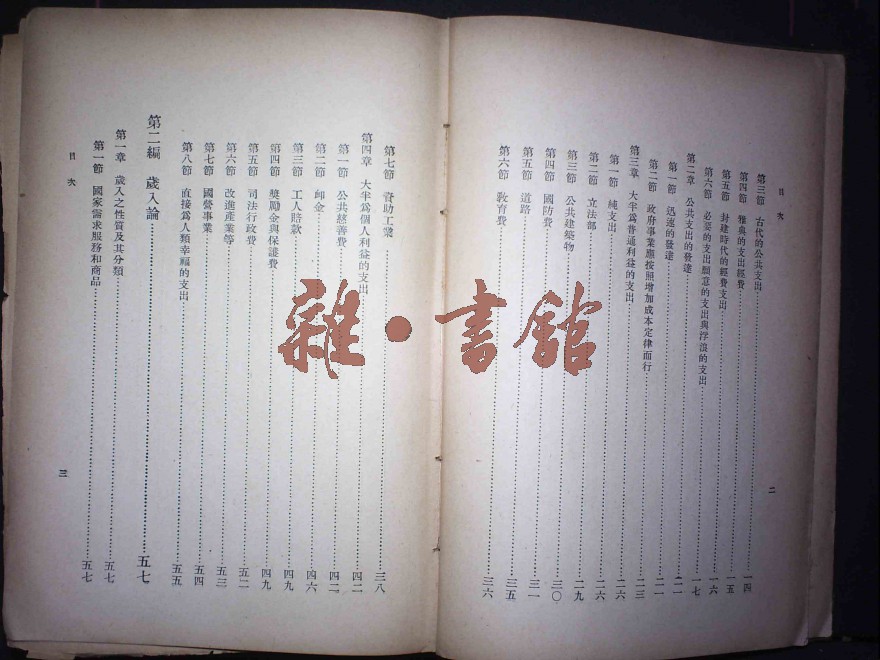 目次
第三節 古代的公共支出……一四
第四節 雅典的支出經費……一五
第五節 封建時代的經費支出……一六
第六節 必要的支出願意的支出與浮浪的支出……一七
第二章 公共支出的發達……二一
第一節 迅速的發達……二一
第二節 政府事業應按照增加成本定律而行……二三
第三章 大半爲普通利益的支出……二六
第一節 純支出……二六
第二節 立法部……二九
第三節 公共建築物……三〇
第四節 國防費……三一
第五節 道路……三五
第六節 敎育費……三六
二
第七節 資助工業……三八
第四章 大半爲個人利益的支出……四二
第一節 公共慈善費……四二
第二節 卹金……四六
第三節 工人賠款……四九
第四節 獎勵金與保護費……四九
第五節 司法行政費……五二
第六節 改進產業等……五三
第七節 國營事業……五四
第八節 直接爲人類幸福的支出……五五
第二編 歲入論……五七
第一章 歲入之性質及其分類……五七
第一節 國家需求服務和商品……五七
目次
三
雜·書館